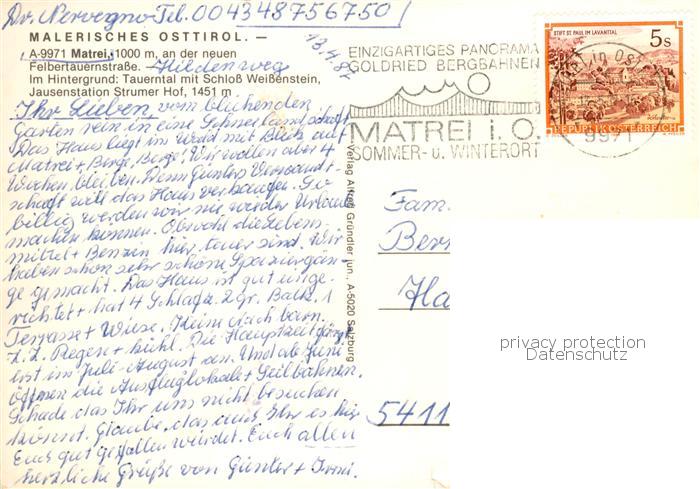 Dr. Nervegno Tel. 0043 48756750
MALERISCHES OSTTIROL. —
13.4.87
A-9971 Matrei, 1000 m, an der neuen
Felbertauernstraße. Hildenweg
Im Hintergrund: Tauerntal mit Schloß Weißenstein,
Jausenstation Strumer Hof, 1451 m
Ihr Lieben, vom blühenden
Garten rein in eine Schneelandschaft
Das Haus liegt im Wald mit Blick auf
Matrei + Berge, Berge! Wir wollen aber 4
Wochen bleiben. Denn Günters Verwandt-
schaft will das Haus verkaufen. So
billig werden wir nie wieder Urlaub
machen können. Obwohl die Lebens-
mittel + Benzin hier teuer sind. Wir
haben schon sehr schöne Spaziergän-
ge gemacht. Das Haus ist gut einge-
richtet + hat 4 Schlafz. 2 gr. Balk. 1
Terrasse + Wiese. Heim nach
z.Z. Regen + kühl. Die Hauptzeit fängt
erst im Juli - August an. Und ab Juni
öffnen die Ausfluglokale + Seilbahnen.
Schade das Ihr uns nicht besuchen
könnt. Glaube, das auch Ihr es hier
Euch gut gefallen würdet. Euch allen
herzliche Grüße von Günter + Irmi.
Verlag Alfred Gründler jun., A-5020 Salzburg
EINZIGARTIGES PANORAMA
GOLDRIED BERGBAHNEN
MATREI i. O.
SOMMER- u. WINTERORT
STIFT ST. PAUL IM LAVANTTAL
5s
REPUBLIK ÖSTERREICH
9971
Fam.
Ber
Ha
5411
privacy protection
Datenschutz